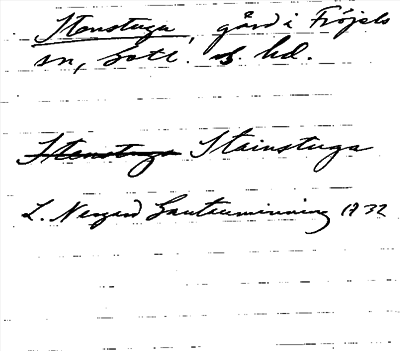 Stenstuga, gård i Fröjels
sn, Gotl. s. hd.
Stenstuga Stainstuga
L. Neogard Gautauminning 1732